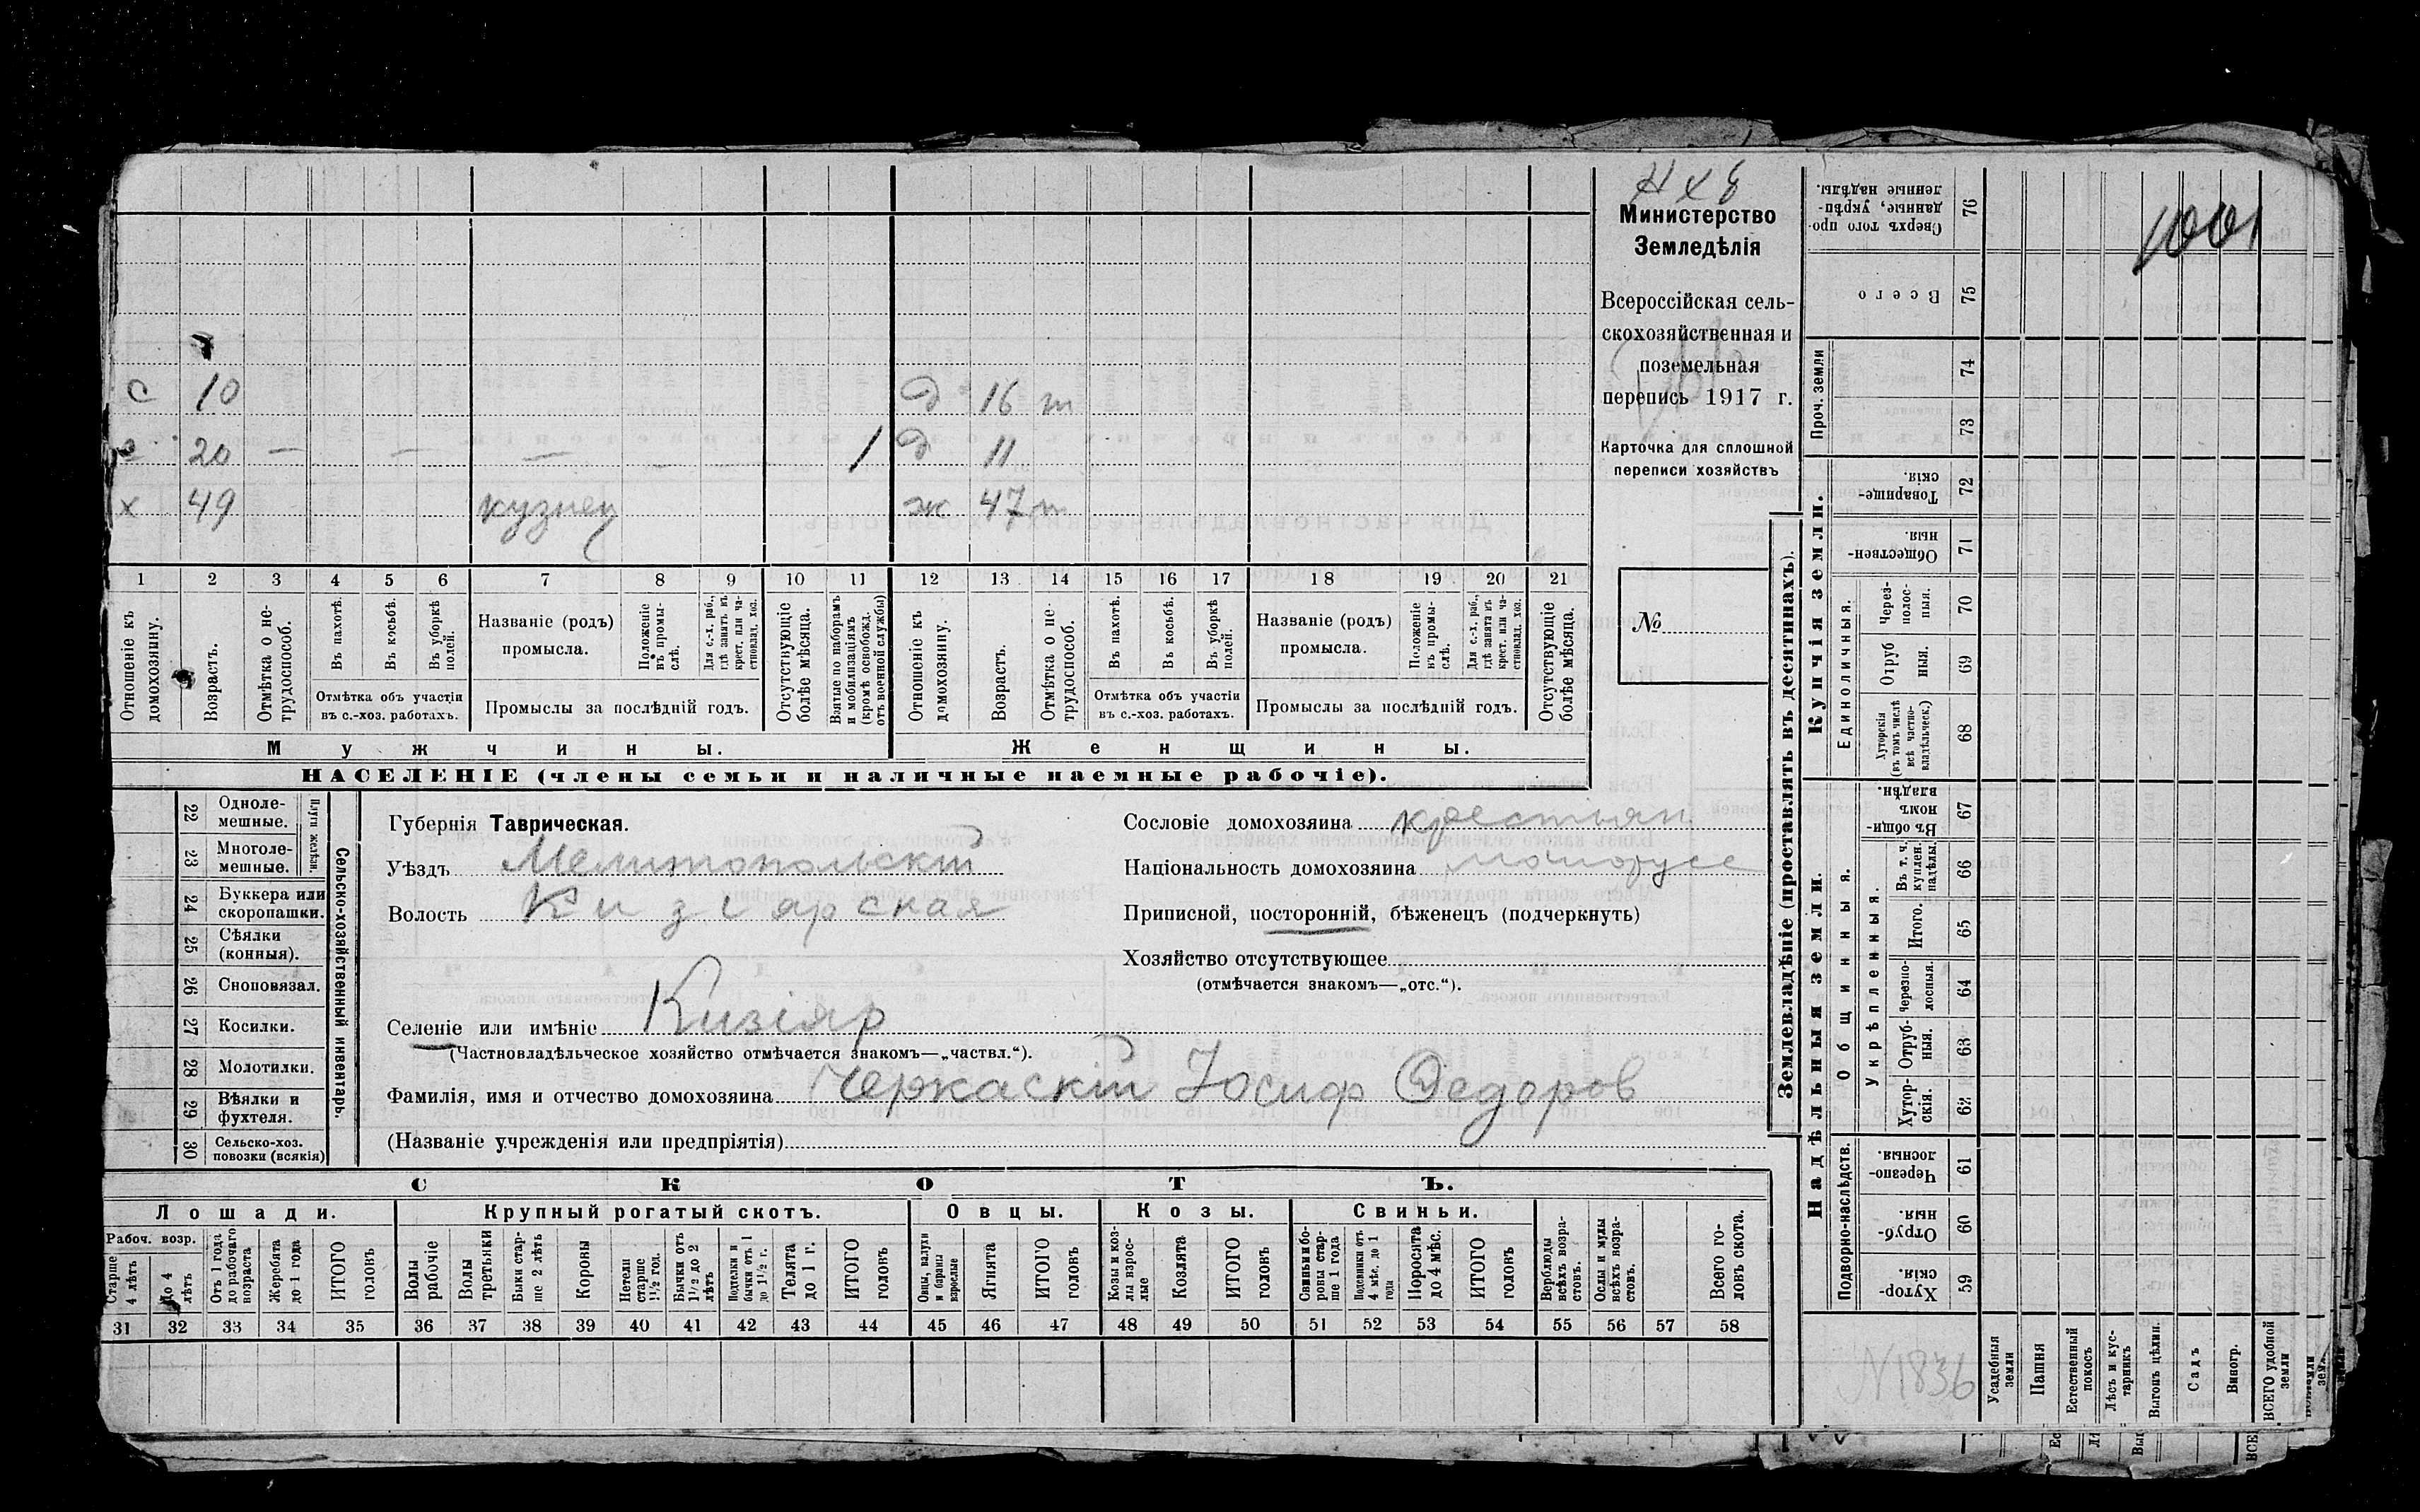 Н х 8
Министерство
Земледѣлія
Всероссійская сель-
скохозяйственная и
поземельная
перепись 1917 г.
Карточка для сплошной
переписи хозяйствъ
№
с 10
с 20 — — — — 1
х 49 кузнец
д 16 т
д 11
ж 47 т
1 2 3 4 5 6 7 8 9 10 11 12 13 14 15 16 17 18 19 20 21
Отношеніе къ домохозяину.
Возрастъ.
Отмѣтка о не-трудоспособ.
Въ пахотѣ.
Въ косьбѣ.
Въ уборкѣ полей.
Отмѣтка объ участіи
въ с.-хоз. работахъ.
Названіе (родъ)
промысла.
Положеніе въ промы-слѣ.
Для с.-х. раб., гдѣ занятъ въ крест. или ча-стновлад. хоз.
Промыслы за послѣдній годъ.
Отсутствующіе болѣе мѣсяца.
Взятые по наборамъ и мобилизаціямъ (кромѣ освобожд. отъ военной службы)
Отношеніе къ домохозяину.
Возрастъ.
Отмѣтка о не-трудоспособ.
Въ пахотѣ.
Въ косьбѣ.
Въ уборкѣ полей.
Отмѣтка объ участіи
въ с.-хоз. работахъ.
Названіе (родъ)
промысла.
Положеніе въ промы-слѣ.
Для с.-х. раб., гдѣ занята въ крест. или ча-стновлад. хоз.
Промыслы за послѣдній годъ.
Отсутствующіе болѣе мѣсяца.
Мужчины.
Женщины.
НАСЕЛЕНІЕ (члены семьи и наличные наемные рабочіе).
22 Одноле-мешные.
23 Многоле-мешные.
Плуги желѣзн.
24 Буккера или скоропашки.
25 Сѣялки (конныя).
26 Сноповязал.
27 Косилки.
28 Молотилки.
29 Вѣялки и фухтеля.
30 Сельско-хоз. повозки (всякія)
Сельско-хозяйственный инвентарь.
Губернія Таврическая.
Уѣздъ Мелитопольскій
Волость Кизіярская
Сословіе домохозяина крестьян
Національность домохозяина малорусс
Приписной, посторонній, бѣженецъ (подчеркнуть)
Хозяйство отсутствующее
(отмѣчается знакомъ—„отс.“).
Селеніе или имѣніе Кизіяр
(Частновладѣльческое хозяйство отмѣчается знакомъ—„частвл.“).
Фамилія, имя и отчество домохозяина Черкаскій Іосиф Федоров
(Названіе учрежденія или предпріятія)
СКОТЪ.
Лошади. Крупный рогатый скотъ. Овцы. Козы. Свиньи.
Рабоч. возр.
Старше 4 лѣтъ
До 4 лѣтъ
Отъ 1 года до рабочаго возраста
Жеребята до 1 года
ИТОГО головъ
Волы рабочіе
Волы третьяки
Быки стар-ше 2 лѣтъ
Коровы
Нетели старше 1½ год.
Бычки отъ 1½ до 2 лѣтъ
Подтелки и бычки отъ 1 до 1½ г.
Телята до 1 г.
ИТОГО головъ
Овцы, валухи и бараны взрослые
Ягнята
ИТОГО головъ
Козы и коз-лы взрос-лые
Козлята
ИТОГО головъ
Свиньи и бо-ровы стар-ше 1 года
Подсвинки отъ 4 мѣс. до 1 года
Поросята до 4 мѣс.
ИТОГО головъ
Верблюды всѣхъ возра-стовъ.
Ослы и мулы всѣхъ возра-стовъ.
Всего го-ловъ скота.
31 32 33 34 35 36 37 38 39 40 41 42 43 44 45 46 47 48 49 50 51 52 53 54 55 56 57 58
Землевладѣніе (проставлять въ десятинахъ).
1001
76 Сверхъ того про-данные, укрѣп-ленные надѣлы.
75 Всего
Проч. земли
74
73
Купчія земли.
72 Товарище-скія.
71 Обществен-ныя.
Единоличныя.
70 Через-полос-ныя.
69 Отруб ныя.
68 Хуторскія (въ томъ числѣ всѣ частно-владѣльческ.)
Надѣльныя земли.
Общинныя.
67 Въ общи-номъ владѣн.
Укрѣпленныя.
66 Въ т. ч. куплен. надѣлы.
65 Итого.
64 Черезпо-лосныя.
63 Отруб-ныя.
62 Хутор-скія.
Подворно-наслѣдств.
61 Черезпо-лосныя.
60 Отруб-ныя.
59 Хутор-скія.
Усадебныя земли
Пашня
Естественный покосъ
Лѣсъ и кус-тарникъ
Выгонъ цѣлин.
Садъ
Виногр.
ВСЕГО удобной земли
N1836